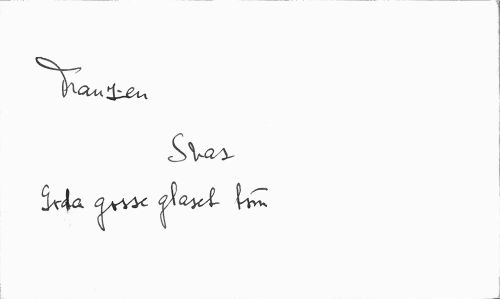 Franzen
Svar
Goda gosse glaset töm